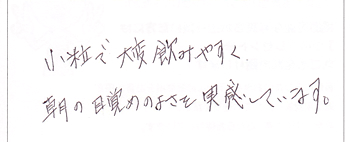 小粒で大変飲みやすく、
朝の目覚めのよさを実感しています。